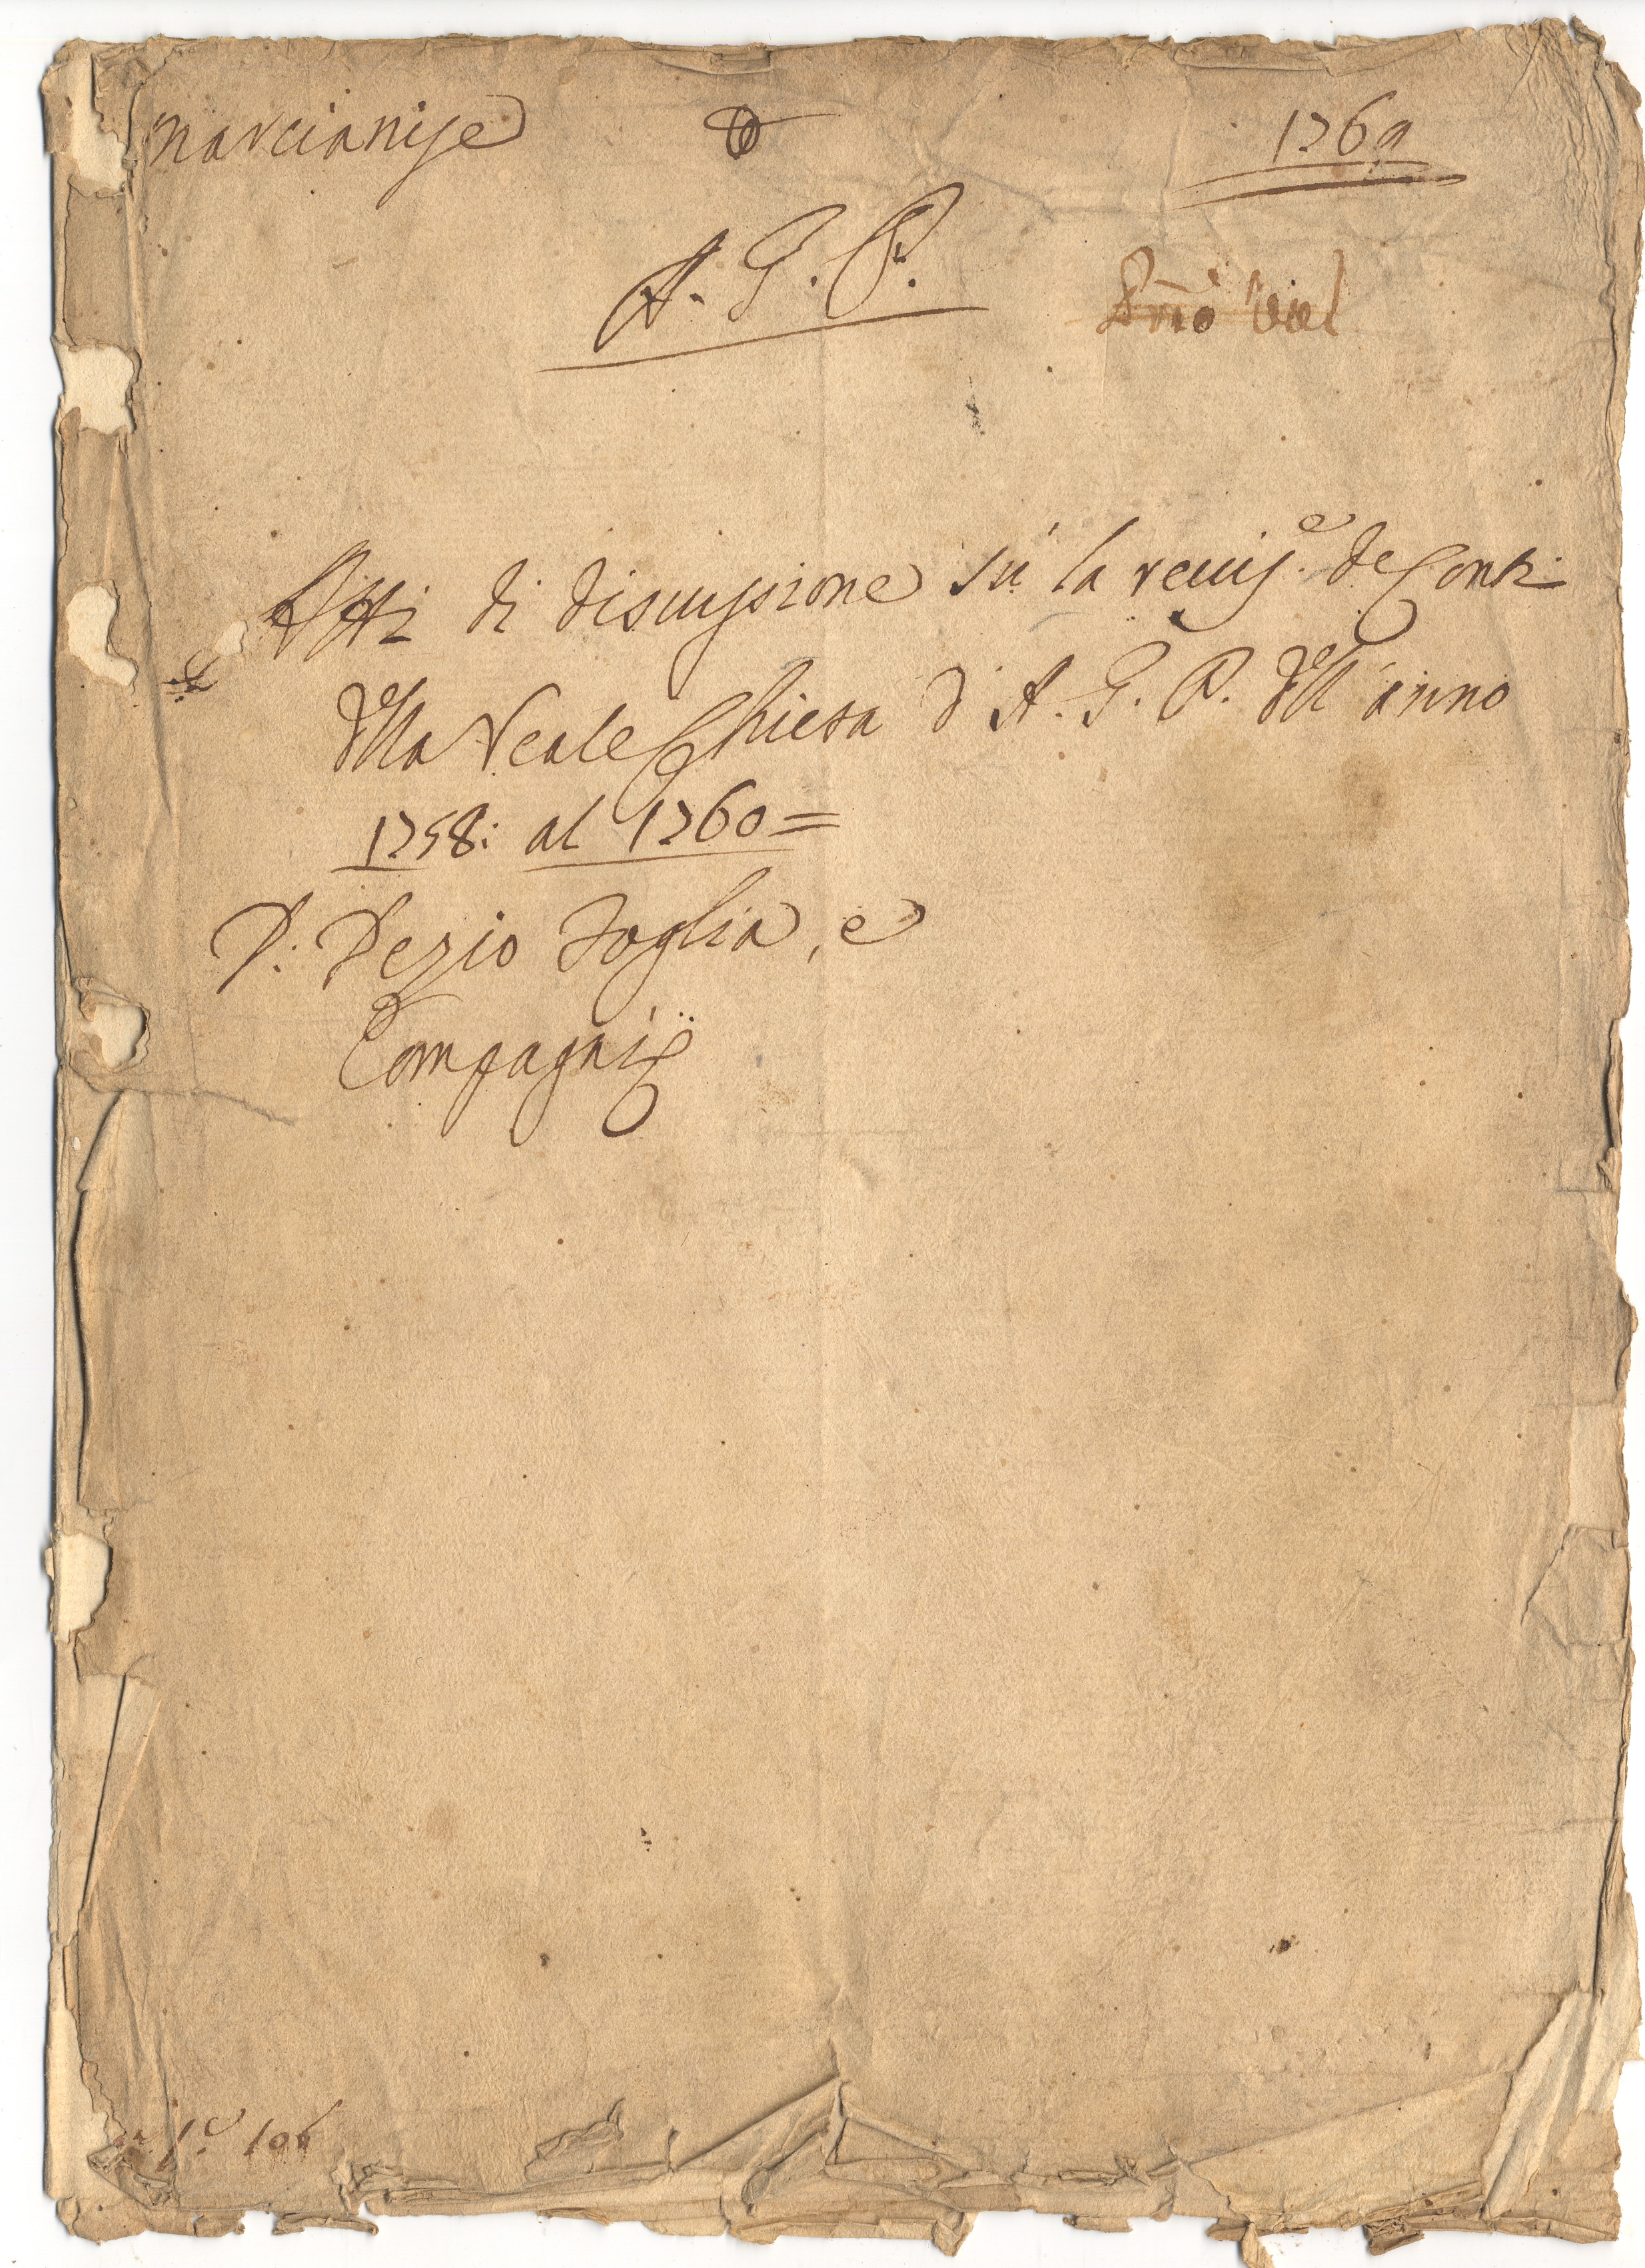 Marcianise 1769
A. G. P.
Atti di discussione sù la reuis.e de Conti
della Reale Chiesa d'A. G. P. dell'anno
1758: al 1760=
P: Pezio Foglia, e
Compagni
106